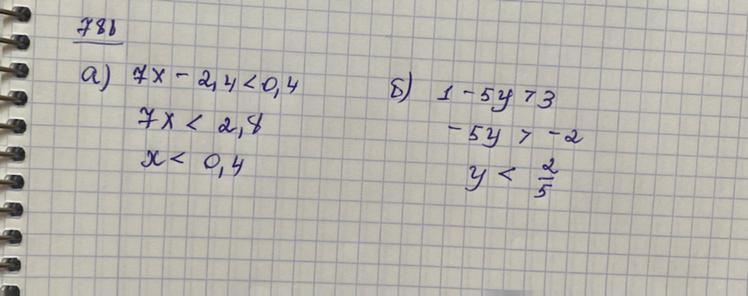 786
а) 7x - 2,4 < 0,4
7x < 2,8
x < 0,4
б) 1 - 5y > 3
-5y > -2
y < 2/5